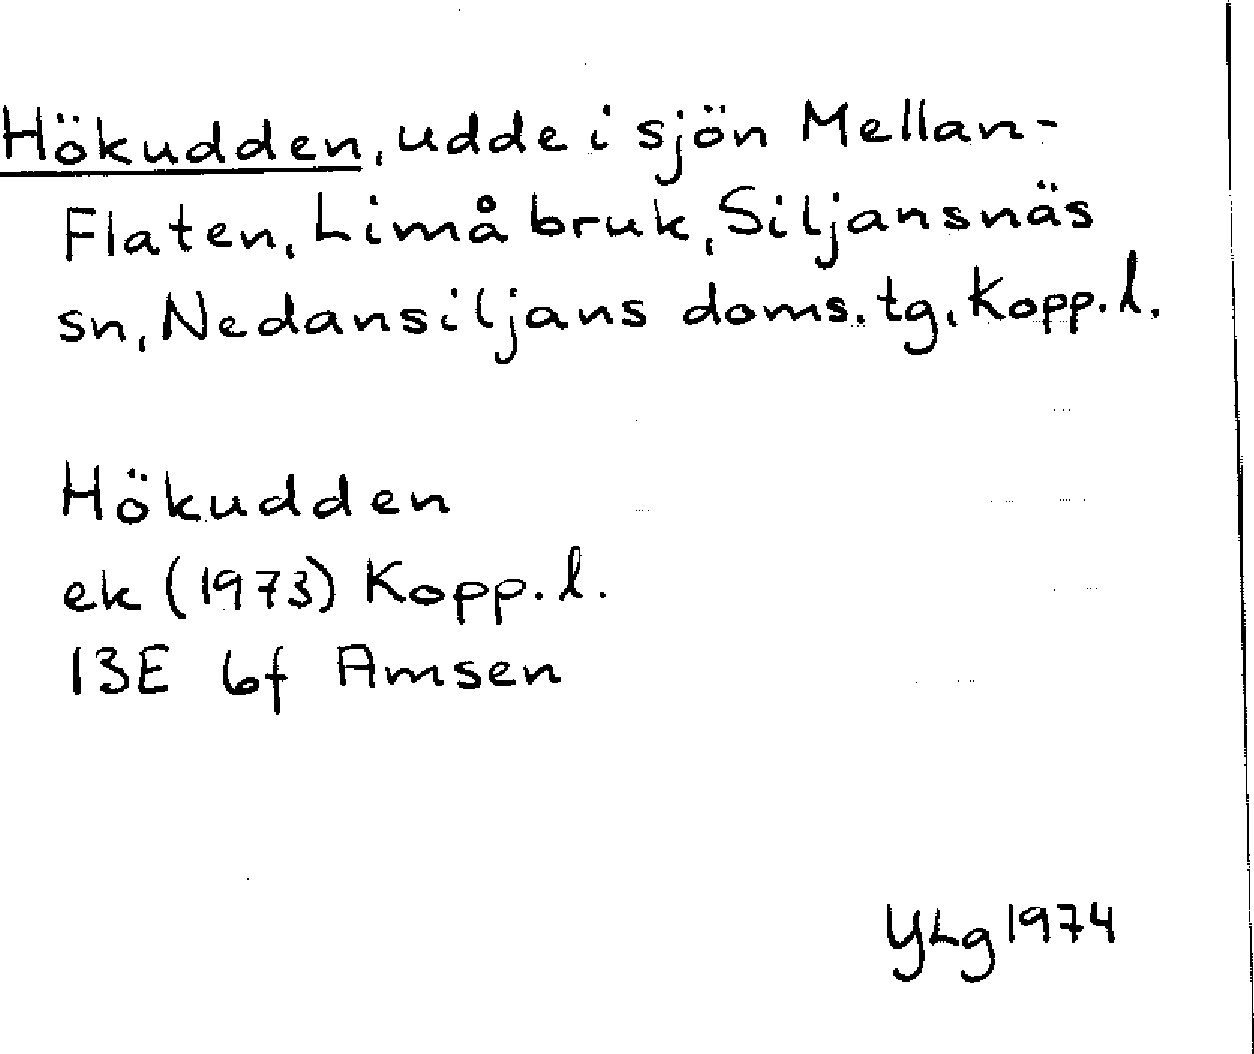 Hökudden, udde i sjön Mellan-
Flaten, Limå bruk, Siljansnäs
sn, Nedansiljans doms. tg, Kopp. l.
Hökudden
ek (1973) Kopp. l.
13E 6f Amsen
YLg 1974